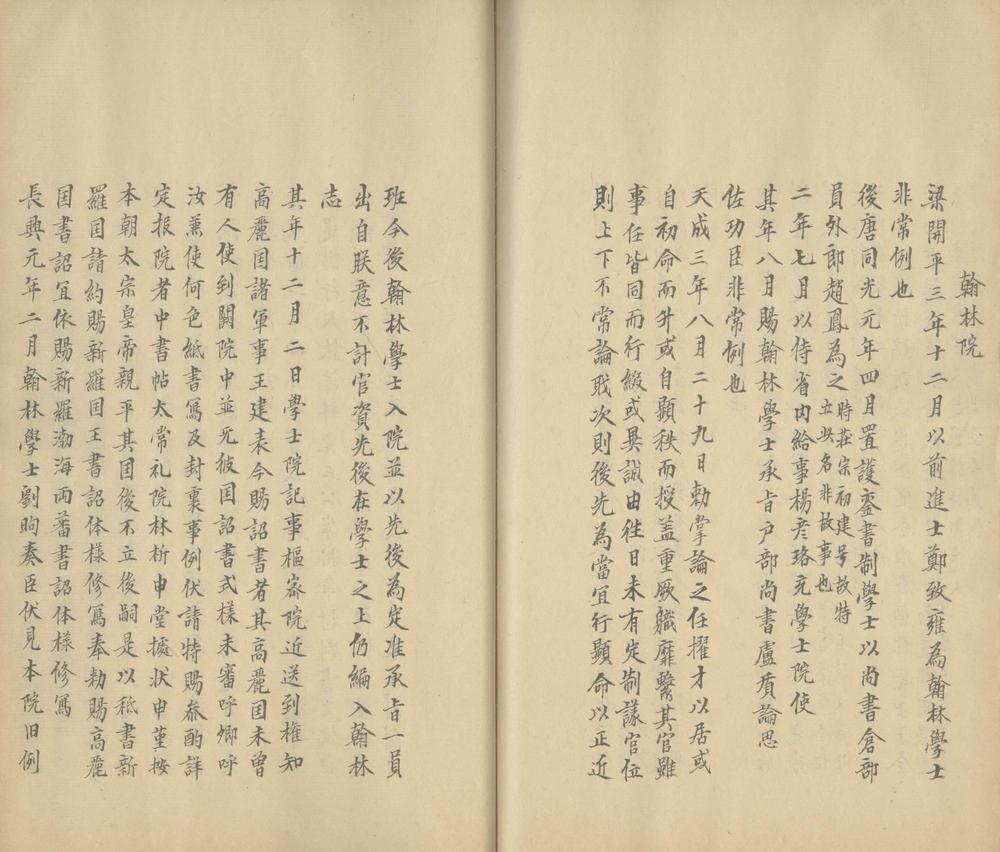 翰林院
梁開平三年十二月以前進士鄭致雍為翰林學士
非常例也
後唐同光元年四月置護鑾書制學士以尚書倉部
員外郎趙鳳為之時莊宗初建号故特
立此名非故事也
二年七月以侍省内給事楊彥珞充學士院使
其年八月賜翰林學士承旨户部尚書盧質論思
佐功臣非常例也
天成三年八月二十九日勅掌論之任擢才以居或
自初命而升或自顯秩而授蓋重厥職靡繫其官雖
事任皆同而行綴或異誠由往日未有定制議官位
則上下不常論戝次則後先為當宜行顯命以正近
班今後翰林學士入院並以先後為定准承旨一員
出自朕意不計官資先後在學士之上仍編入翰林
志
其年十二月二日學士院記事樞宻院近送到權知
高麗囯諸軍事王建表今賜詔書者其高麗囯未曾
有人使到闕院中並无彼囯詔書式樣未審呼卿呼
汝兼使何色紙書寫及封裹事例伏請特賜叅酌詳
定报院者中書帖太常礼院林析申堂㨿状申堇按
本朝太宗皇帝親平其囯後不立後嗣是以秪書新
羅囯請約賜新羅囯王書詔体様修寫奉勅賜高麗
囯書詔宜依賜新羅渤海两蕃書詔体様修寫
長興元年二月翰林學士劉昫奏臣伏見本院旧例